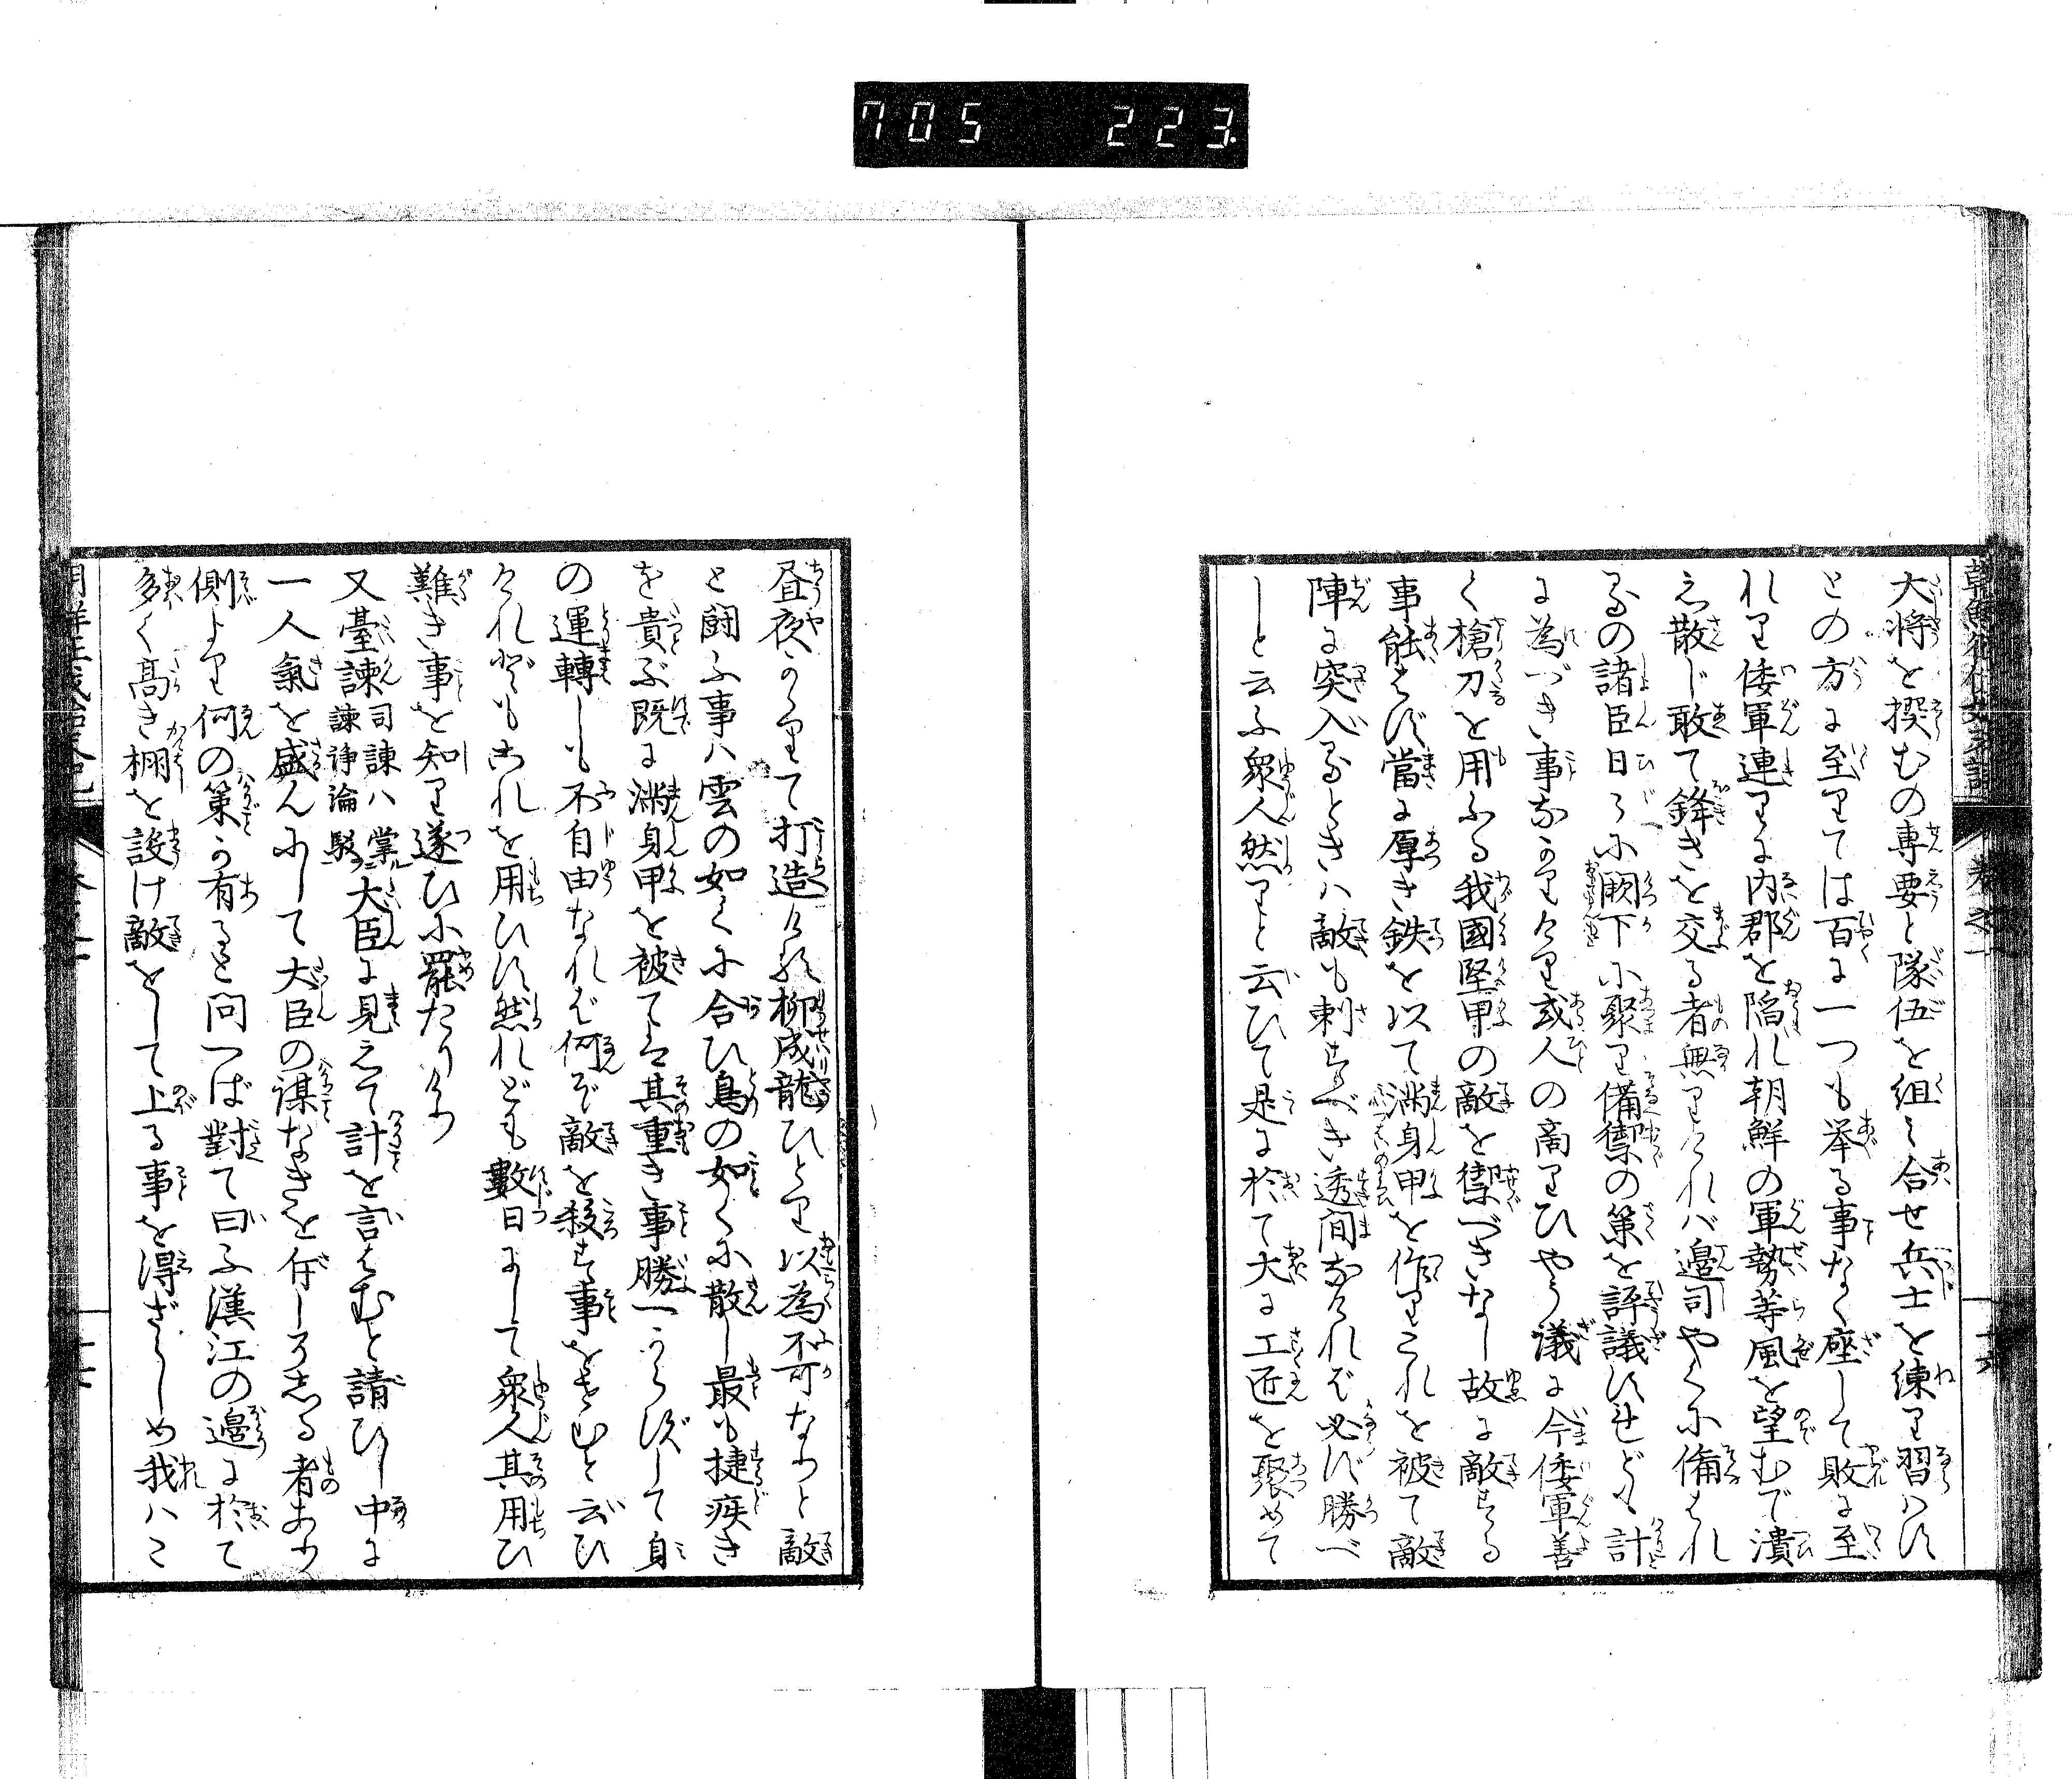 705 223
大将を撰むの専要と隊伍を組み合せ兵士を練り習はす
との方に至りては百に一つも挙る事なく座して敗に至
れり倭軍連りに内郡を陥れ朝鮮の軍勢等風を望むで潰
え散じ敢て鋒きを交る者無りければ邊司やくに備はれ
るの諸臣日々に闕下に聚り備禦の策を評議すれども計
に為べき事なかりけり或人の啇りひやう議に今倭軍善
く槍刀を用ふる我國堅甲の敵を禦べきなし故に敵する
事能はず當に厚き鉄を以て満身甲を作りこれを被て敵
陣に突入るときは敵も刺すべき透間なければ必ず勝べ
しと云ふ衆人然りと云ひて是に於て大に工匠を聚めて
昼夜かけて打造ける柳成龍ひとり以為不可なりと敵
と闘ふ事は雲の如くに合ひ鳥の如くに散し最も捷疾き
を貴ぶ既に満身甲を被ては其重き事勝べからずして身
の運轉しも不自由なれば何ぞ敵を殺す事をせむと云ひ
けれどもこれを用ひす然れども數日にして衆人其用ひ
難き事を知り遂ひに罷たりけり
又臺諫司諫ハ掌諫諍論駁大臣に見えて計を言はむと請ひし中に
一人氣を盛んにして大臣の謀なきを斥しるしる者あり
側より何の策か有ると問つば對て曰ふ漢江の邊に於て
多く髙き棚を設け敵をして上る事を得ざらしめ我ハこ